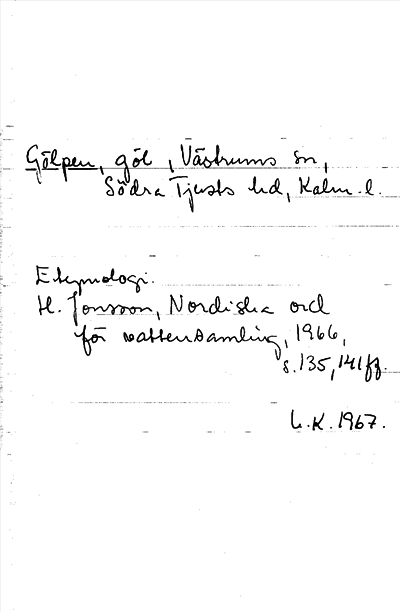 Gölpen, göl, Västrums sn,
Södra Tjusts hd, Kalm. l.
Etymologi.
H. Jonsson, Nordiska ord
för vattensamling, 1966,
s. 135, 141 ff.
L.K. 1967.